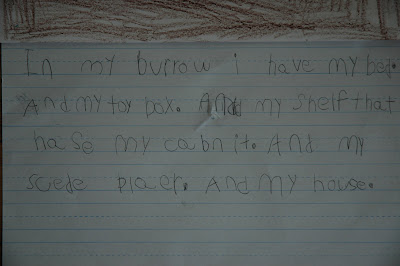 In my burrow i have my bed.
And my toy box. And my shelf that
hase my cabnit. And my
scede placer. And my house.